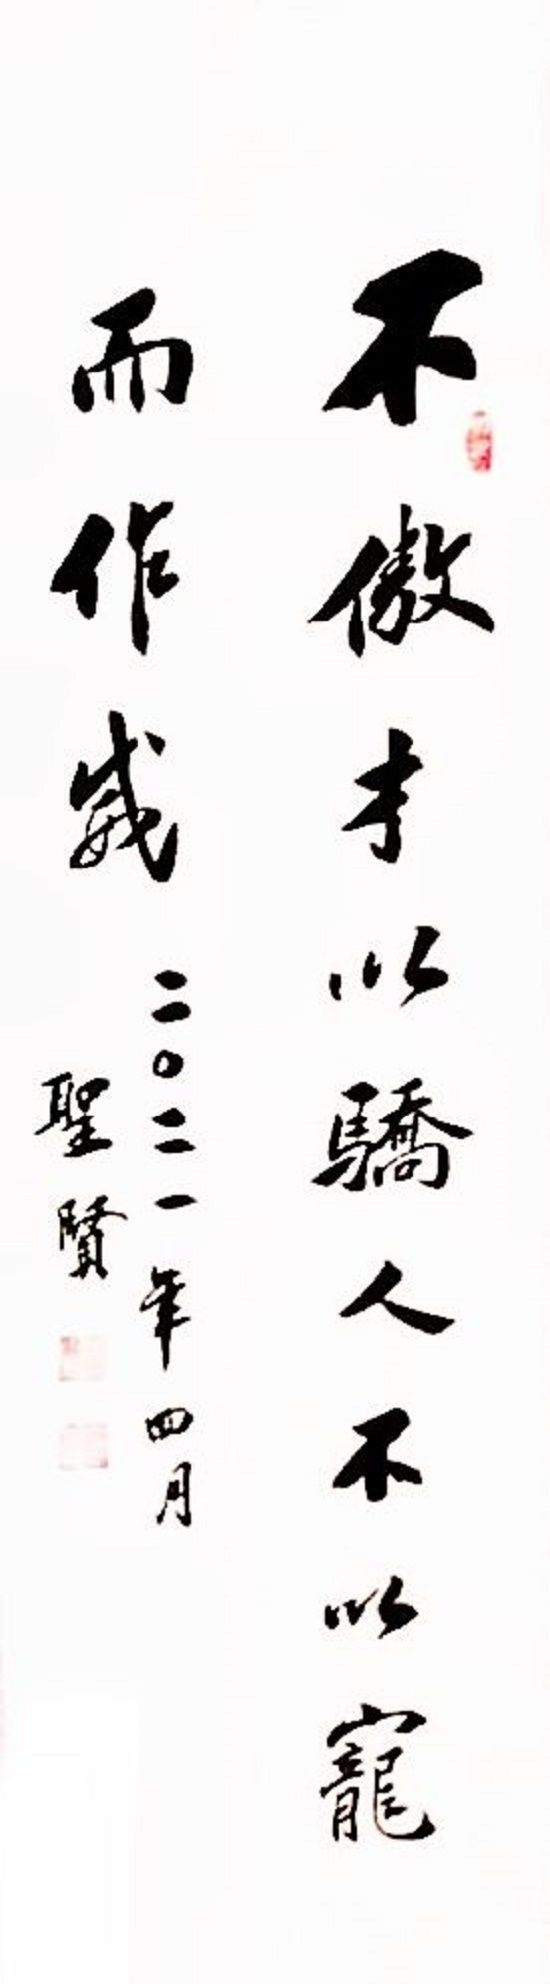 不傲才以驕人不以寵
而作威
二〇二一年四月
聖賢